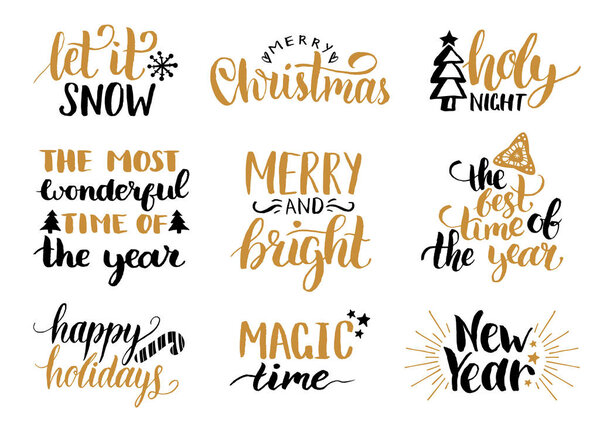 let it
SNOW
MERRY
Christmas
holy
NIGHT
THE MOST
wonderful
TIME OF
the year
MERRY
AND
bright
the
best
time of
the year
happy
holidays
MAGIC
time
New
Year